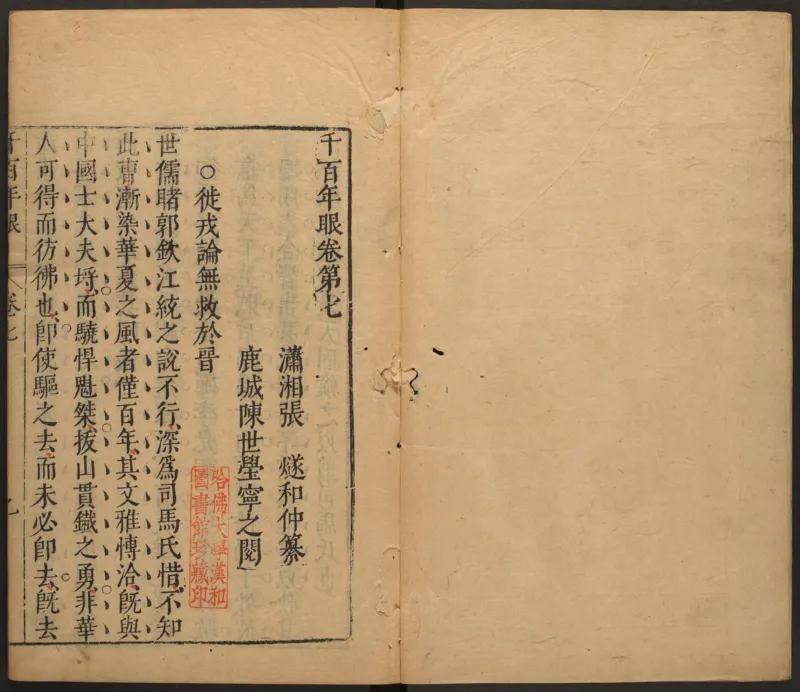 千百年眼卷第七
瀟湘張 燧和仲纂
鹿城陳世瑩寧之閱
○徙戎論無救於晉
世儒睹郭欽江統之說不行深爲司馬氏惜不知
此曹漸染華夏之風者僅百年其文雅愽洽旣與
中國士大夫埒而驍悍魁桀拔山貫鐵之勇非華
人可得而彷彿也卽使驅之去而未必卽去旣去
千百年眼
卷七
哈佛大學漢和
圖書館珍藏印